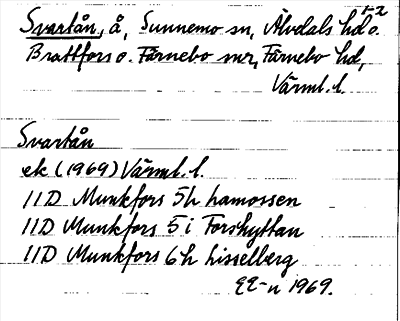 1-2
Svartån, å, Sunnemo sn, Älvdals hd o.
Brattfors o. Färnebo snr, Färnebo hd,
Värml. l.
Svartån
ek (1969) Värml. l.
11D Munkfors 5h hamossen
11D Munkfors 5i Forshyttan
11D Munkfors 6h hisselberg
1969.